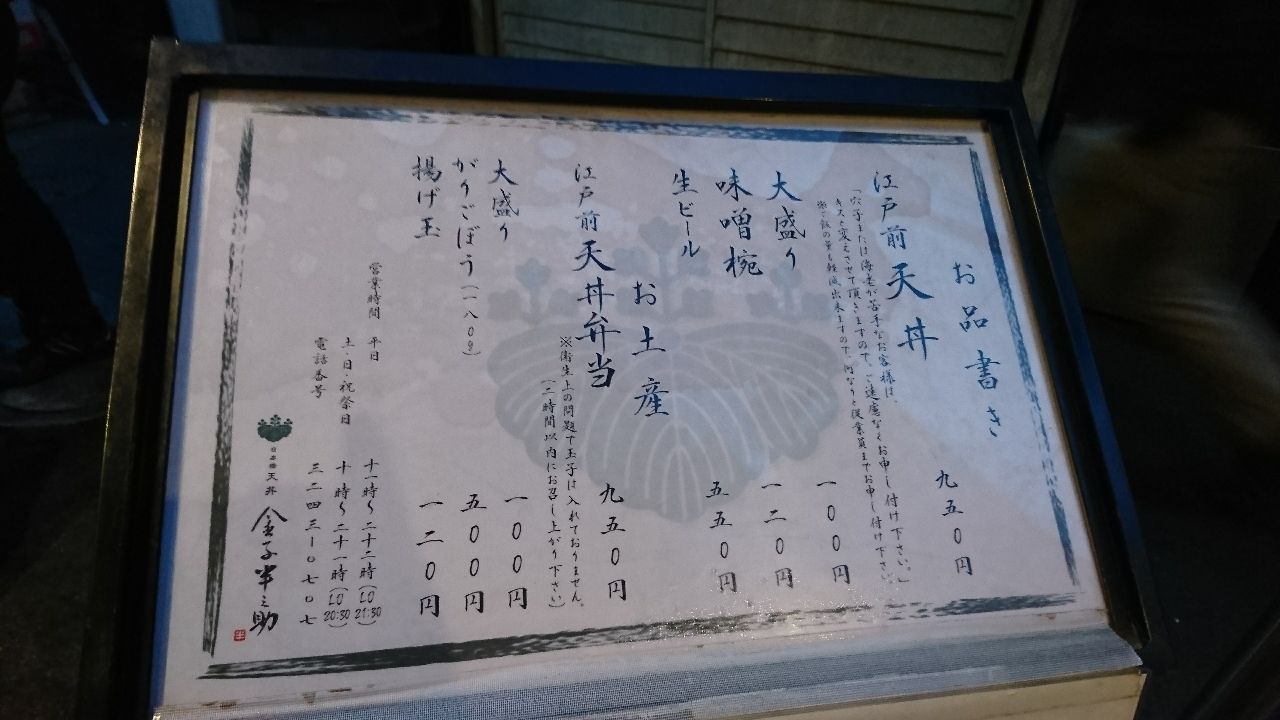 お品書き
江戸前天丼 九五〇円
「穴子または海老が苦手なお客様は、
キスに変えさせて頂きますので、ご遠慮なくお申し付け下さい。」
大盛り 一〇〇円
味噌椀 一二〇円
生ビール 五五〇円
お土産
江戸前天丼弁当 九五〇円
※衛生上の問題で玉子は入れておりません。
(二時間以内にお召し上がり下さい)
大盛り 一〇〇円
がりごぼう(一八〇g) 五〇〇円
揚げ玉 一二〇円
営業時間 平日 十一時〜二十二時(LO 21:30)
土・日・祝祭日 十時〜二十一時(LO 20:30)
電話番号 三二四三-〇七〇七
日本橋 天丼 金子半之助